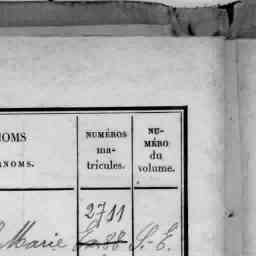 NOMS
RNOMS.
NUMÉROS
ma-
tricules.
NU-
MÉRO
du
volume.
2711
Marie S.-E.